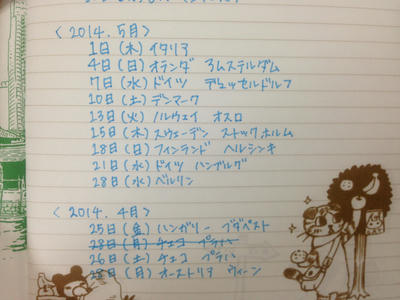 〈2014.5月〉
1日(木)イタリア
4日(日)オランダ アムステルダム
7日(水)ドイツ デュッセルドルフ
10日(土)デンマーク
13日(火)ノルウェイ オスロ
15日(木)スウェーデン ストックホルム
18日(日)フィンランド ヘルシンキ
21日(水)ドイツ ハンブルグ
28日(水)ベルリン
〈2014.4月〉
25日(金)ハンガリー ブダペスト
28日(月)チェコ プラハ
26日(土)チェコ プラハ
日(月)オーストリア ウィーン